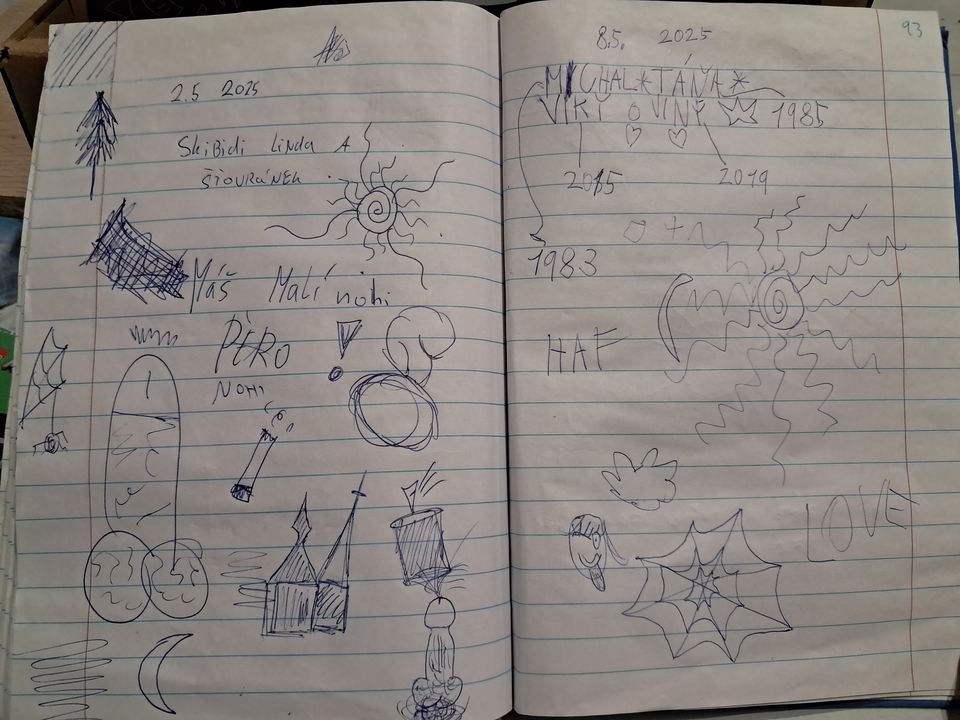 2.5 2025
Skibidi Linda A
ŠŤOURÁNEK
Máš Malí nohi
PÉRO
NOHI
93
8.5. 2025
MICHAL*TÁŇA*
VIKÝ O VINÝ 1985
2015 2019
1983
HAF
LOVE